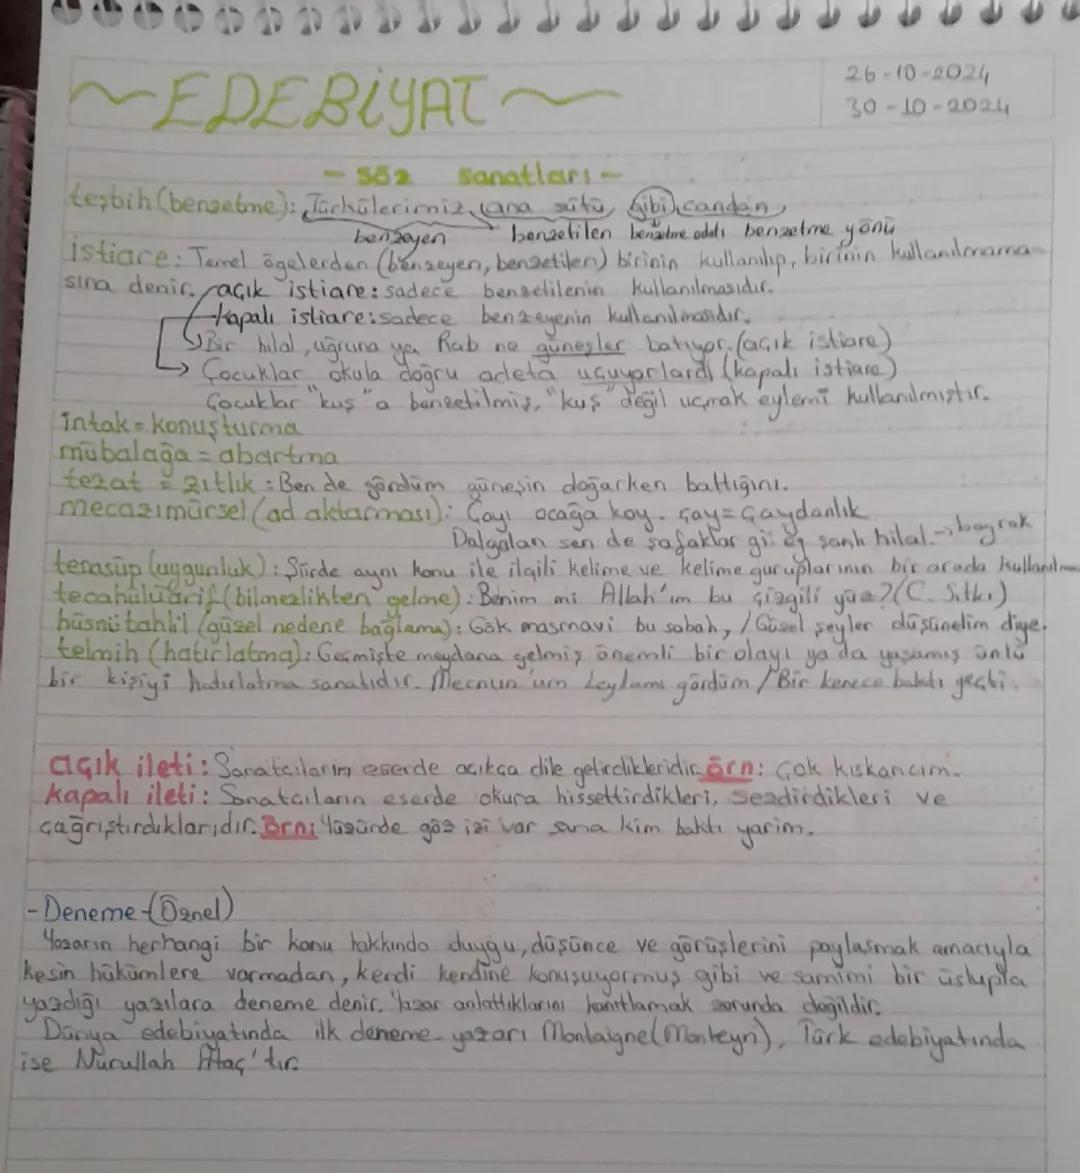 ~EDEBİYAT~
26-10-2024
30-10-2024
- Söz sanatları -
teşbih (benzetme): Türkülerimiz ana sütü gibi candan
benzeyen benzetilen benzetme edatı benzetme yönü
istiare: Temel ögelerden (benzeyen, benzetilen) birinin kullanılıp, birinin kullanılmama-
sına denir. açık istiare: sadece benzetilenin kullanılmasıdır.
kapalı istiare: sadece benzeyenin kullanılmasıdır.
Bir hilal, uğruna ya Rab ne güneşler batıyor. (açık istiare)
Çocuklar okula doğru adeta uçuyorlardı (kapalı istiare)
Çocuklar "kuş"a benzetilmiş, "kuş" değil uçmak eylemi kullanılmıştır.
intak = konuşturma
mübalağa = abartma
tezat = zıtlık: Ben de gördüm güneşin doğarken battığını.
mecazımürsel (ad aktarması): Çayı ocağa koy. çay=çaydanlık
Dalgalan sen de şafaklar gibi ey şanlı hilal. -> bayrak
tenasüp (uygunluk): Şiirde aynı konu ile ilgili kelime ve kelime guruplarının bir arada kullanılma
tecahülüarif (bilmezlikten gelme): Benim mi Allah'ım bu çizgili yüz? (C. Sıtkı)
hüsnütahlil (güzel nedene bağlama): Gök masmavi bu sabah, / Güzel şeyler düşünelim diye.
telmih (hatırlatma): Geçmişte meydana gelmiş önemli bir olayı ya da yaşamış ünlü
bir kişiyi hatırlatma sanatıdır. Mecnun'um Leylamı gördüm / Bir kerece baktı geçti.
açık ileti: Sanatçıların eserde açıkça dile getirdikleridir. örn: Çok kıskancım.
kapalı ileti: Sanatçıların eserde okura hissettirdikleri, sezdirdikleri ve
çağrıştırdıklarıdır. örn: Yüzünde göz izi var sana kim baktı yarim.
- Deneme - (Öznel)
Yazarın herhangi bir konu hakkında duygu, düşünce ve görüşlerini paylaşmak amacıyla
kesin hükümlere varmadan, kendi kendine konuşuyormuş gibi ve samimi bir üslupla
yazdığı yazılara deneme denir. Yazar anlattıklarını kanıtlamak zorunda değildir.
Dünya edebiyatında ilk deneme yazarı Montaigne (Monteyn), Türk edebiyatında
ise Nurullah Ataç'tır.